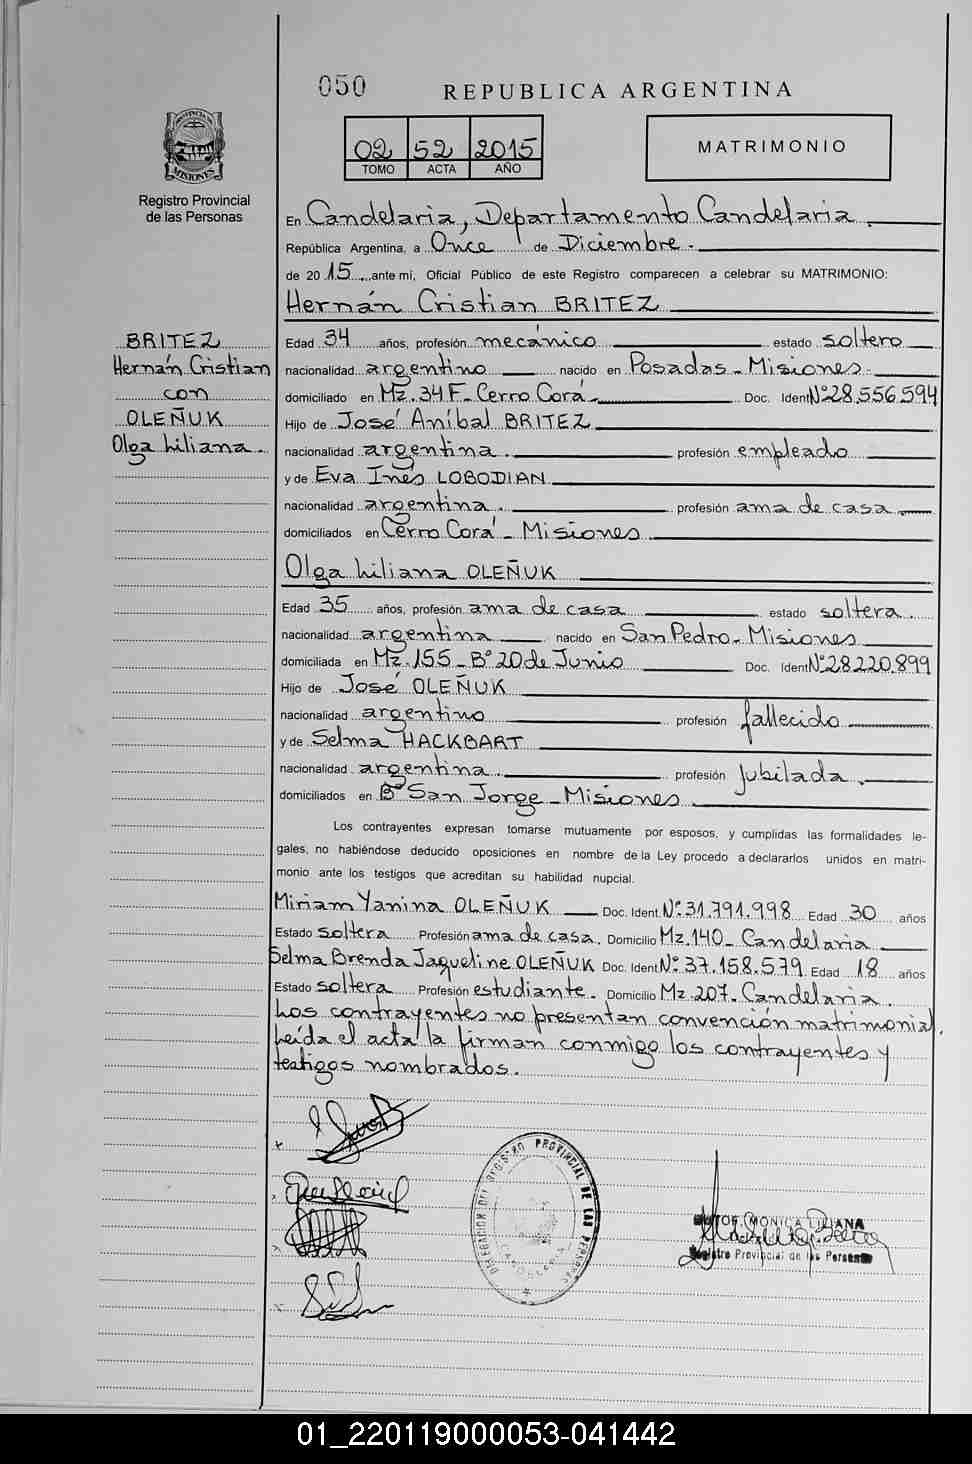 050
REPUBLICA ARGENTINA
PROVINCIA DE
MISIONES
Registro Provincial
de las Personas
02 52 2015
TOMO ACTA AÑO
MATRIMONIO
En Candelaria, Departamento Candelaria.
República Argentina, a Once de Diciembre.
de 2015, ante mi, Oficial Público de este Registro comparecen a celebrar su MATRIMONIO:
Hernán Cristian BRITEZ
BRITEZ
Hernán Cristian
con
OLEÑUK
Olga Liliana.
Edad 34 años, profesión mecánico estado soltero
nacionalidad argentino nacido en Posadas - Misiones.
domiciliado en Mz. 34 F - Cerro Corá - Doc. Ident Nº 28.556.594
Hijo de José Aníbal BRITEZ
nacionalidad argentina. profesión empleado
y de Eva Inés LOBODIAN
nacionalidad argentina. profesión ama de casa
domiciliados en Cerro Corá - Misiones
Olga Liliana OLEÑUK
Edad 35 años, profesión ama de casa estado soltera.
nacionalidad argentina nacido en San Pedro - Misiones
domiciliada en Mz. 155 - Bº 20 de Junio Doc. Ident Nº 28.220.899
Hijo de José OLEÑUK
nacionalidad argentino profesión fallecido
y de Selma HACKBART
nacionalidad argentina. profesión Jubilada.
domiciliados en Bº San Jorge - Misiones
Los contrayentes expresan tomarse mutuamente por esposos, y cumplidas las formalidades le-
gales, no habiéndose deducido oposiciones en nombre de la Ley procedo a declararlos unidos en matri-
monio ante los testigos que acreditan su habilidad nupcial.
Miriam Yanina OLEÑUK Doc. Ident. Nº 31.791.998 Edad 30 años
Estado soltera Profesión ama de casa. Domicilio Mz. 140 - Candelaria
Selma Brenda Jaqueline OLEÑUK Doc. Ident Nº 37.158.579 Edad 18 años
Estado soltera Profesión estudiante. Domicilio Mz 207 - Candelaria.
Los contrayentes no presentan convención matrimonial.
Leída el acta la firman conmigo los contrayentes y
testigos nombrados.
DELEGACION DEL REGISTRO PROVINCIAL DE LAS PERSONAS
CANDELARIA
MONICA LILIANA
Registro Provincial de las Personas
01_220119000053-041442